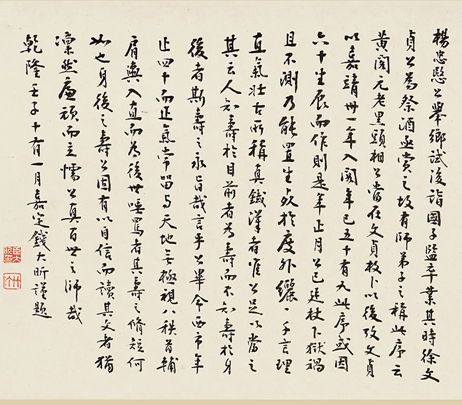 楊忠愍公舉鄉試後詣國子監卒業其時徐文
貞公為祭酒亟賞之故有師弟子之稱此序云
黃閣元老黑頭相公當在文貞枚卜以後攷文貞
以嘉靖卅一年入閣年已五十有九此序或因
六十生辰而作則是年正月公已廷杖下獄禍
且不測乃能置生死於度外纚〻千言理
直氣壯古所稱真鐵漢者唯公足以當之
其云人知壽於目前者為壽而不知壽於身
後者斯壽之永旨哉言乎公畢命西市年
止四十而正氣常留與天地無極視八秩首輔
肩輿入直而為後世唾罵者其壽之脩短何
如也身後之壽公固有以自信而讀其文者猶
凜然廉頑而立懦公真百世之師哉
乾隆壬子十有一月嘉定錢大昕謹題